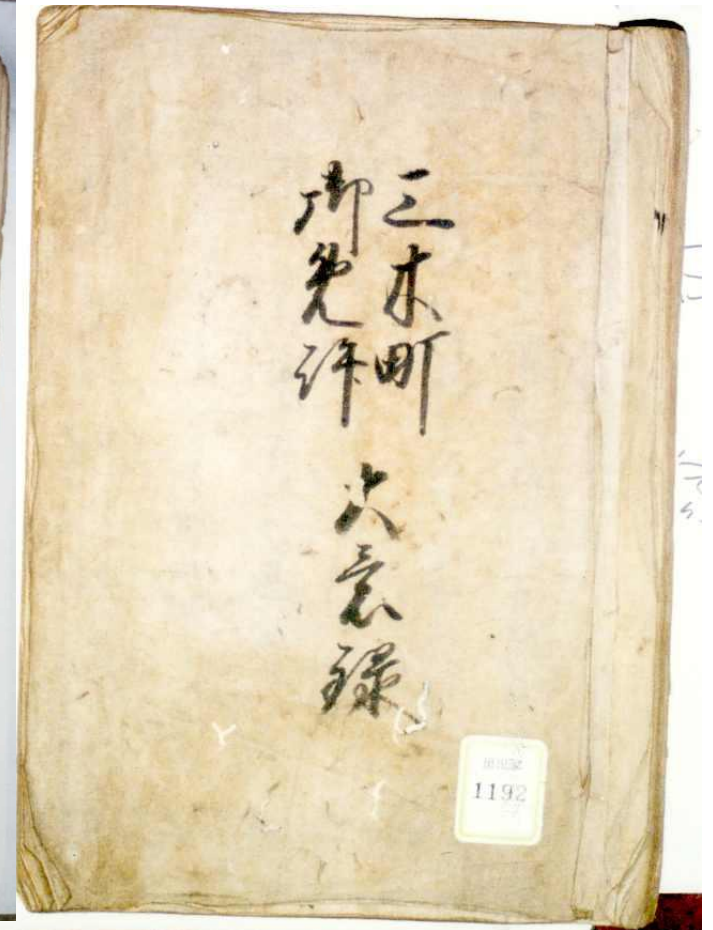 三木町
御免許
大意録
1192